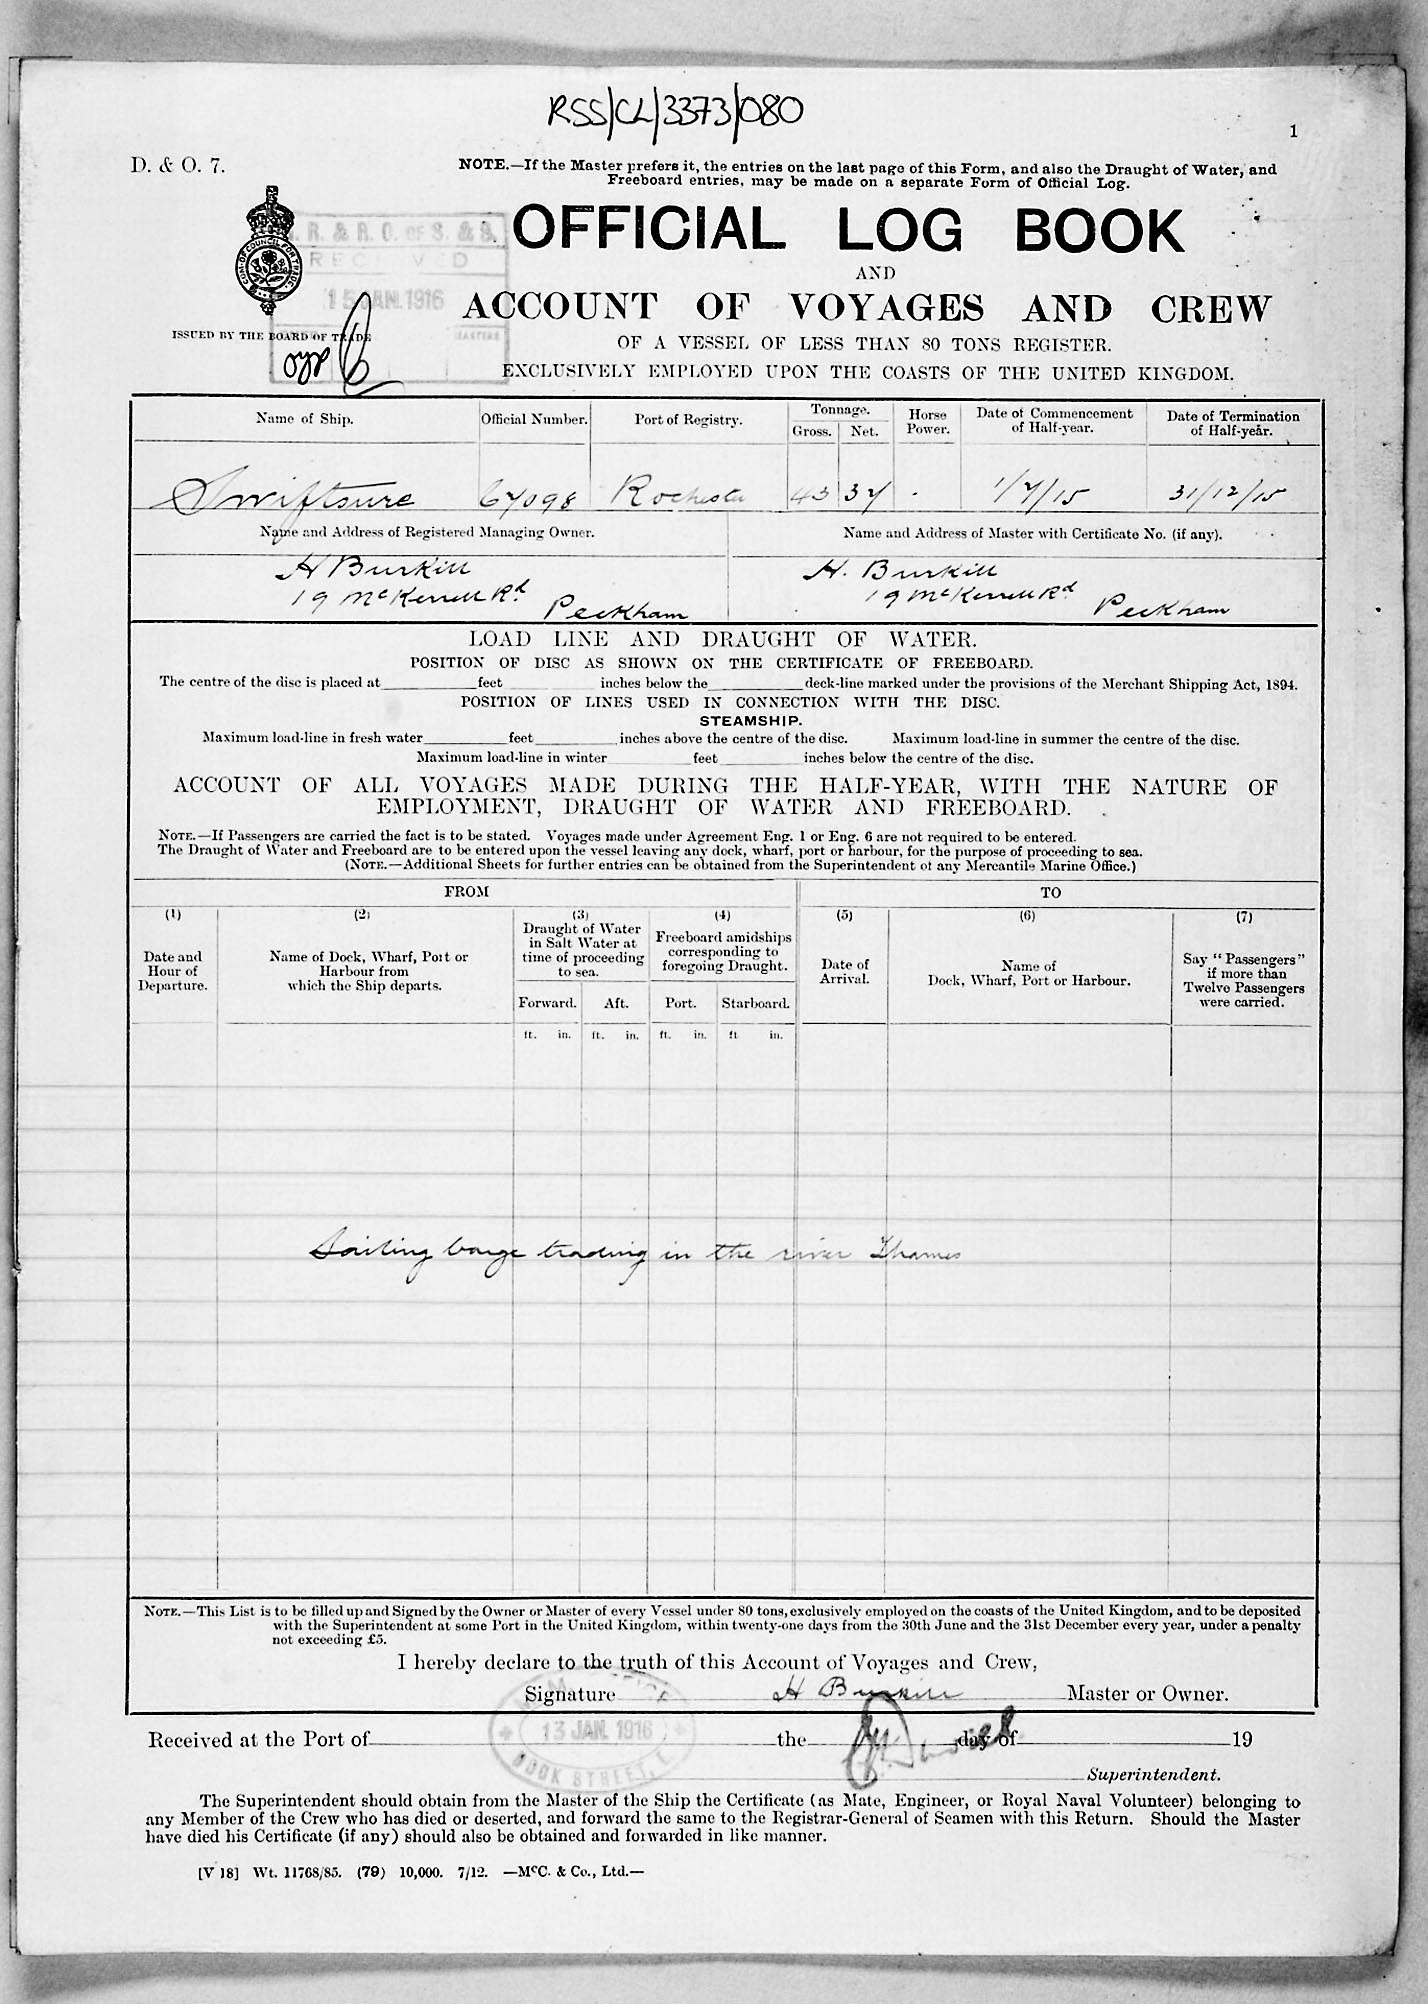 RSS/CL/3373/080
1
D. & O. 7.
NOTE.—If the Master prefers it, the entries on the last page of this Form, and also the Draught of Water, and
Freeboard entries, may be made on a separate Form of Official Log.
R. & R. O. OF S. & S.
RECEIVED
15 JAN. 1916
COM. OF COUNCIL FOR TRADE
ISSUED BY THE BOARD OF TRADE
OFFICIAL LOG BOOK
AND
ACCOUNT OF VOYAGES AND CREW
OF A VESSEL OF LESS THAN 80 TONS REGISTER.
EXCLUSIVELY EMPLOYED UPON THE COASTS OF THE UNITED KINGDOM.
Name of Ship. Official Number. Port of Registry. Tonnage. Gross. Net. Horse Power. Date of Commencement of Half-year. Date of Termination of Half-year.
Swiftsure 67098 Rochester 43 37 - 1/7/15 31/12/15
Name and Address of Registered Managing Owner. Name and Address of Master with Certificate No. (if any).
H Burkill H. Burkill
19 McKerrell Rd Peckham 19 McKerrell Rd Peckham
LOAD LINE AND DRAUGHT OF WATER.
POSITION OF DISC AS SHOWN ON THE CERTIFICATE OF FREEBOARD.
The centre of the disc is placed at feet inches below the deck-line marked under the provisions of the Merchant Shipping Act, 1894.
POSITION OF LINES USED IN CONNECTION WITH THE DISC.
STEAMSHIP.
Maximum load-line in fresh water feet inches above the centre of the disc. Maximum load-line in summer the centre of the disc.
Maximum load-line in winter feet inches below the centre of the disc.
ACCOUNT OF ALL VOYAGES MADE DURING THE HALF-YEAR, WITH THE NATURE OF
EMPLOYMENT, DRAUGHT OF WATER AND FREEBOARD.
NOTE.—If Passengers are carried the fact is to be stated. Voyages made under Agreement Eng. 1 or Eng. 6 are not required to be entered.
The Draught of Water and Freeboard are to be entered upon the vessel leaving any dock, wharf, port or harbour, for the purpose of proceeding to sea.
(NOTE.—Additional Sheets for further entries can be obtained from the Superintendent of any Mercantile Marine Office.)
FROM TO
(1) (2) (3) (4) (5) (6) (7)
Date and Hour of Departure.
Name of Dock, Wharf, Port or Harbour from which the Ship departs.
Draught of Water in Salt Water at time of proceeding to sea.
Freeboard amidships corresponding to foregoing Draught.
Date of Arrival.
Name of Dock, Wharf, Port or Harbour.
Say "Passengers" if more than Twelve Passengers were carried.
Forward. Aft. Port. Starboard.
ft. in. ft. in. ft. in. ft in.
Sailing barge trading in the river Thames
NOTE.—This List is to be filled up and Signed by the Owner or Master of every Vessel under 80 tons, exclusively employed on the coasts of the United Kingdom, and to be deposited
with the Superintendent at some Port in the United Kingdom, within twenty-one days from the 30th June and the 31st December every year, under a penalty
not exceeding £5.
I hereby declare to the truth of this Account of Voyages and Crew,
Signature H Burkill Master or Owner.
13 JAN. 1916
DOCK STREET, E.
Received at the Port of the day of 19
Superintendent.
The Superintendent should obtain from the Master of the Ship the Certificate (as Mate, Engineer, or Royal Naval Volunteer) belonging to
any Member of the Crew who has died or deserted, and forward the same to the Registrar-General of Seamen with this Return. Should the Master
have died his Certificate (if any) should also be obtained and forwarded in like manner.
[V 18] Wt. 11768/85. (79) 10,000. 7/12. —McC. & Co., Ltd.—